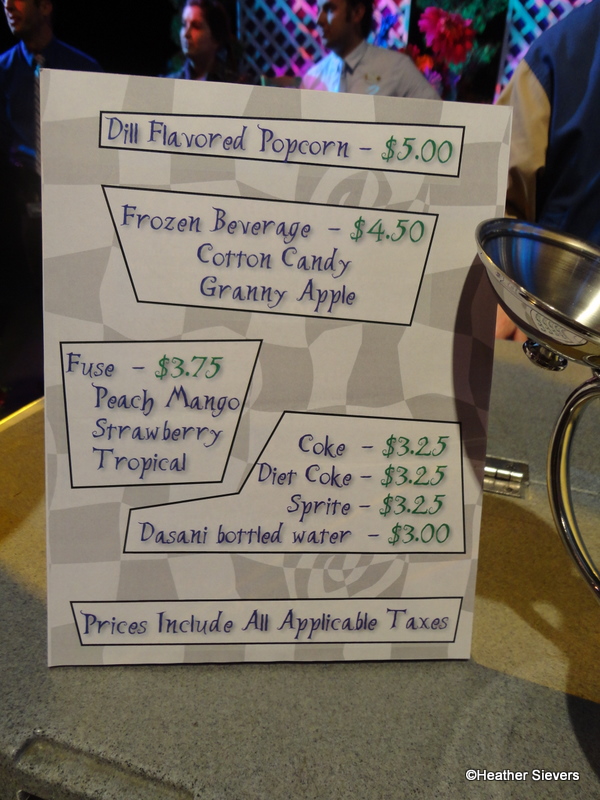 Dill Flavored Popcorn - $5.00
Frozen Beverage - $4.50
Cotton Candy
Granny Apple
Fuse - $3.75
Peach Mango
Strawberry
Tropical
Coke - $3.25
Diet Coke - $3.25
Sprite - $3.25
Dasani bottled water - $3.00
Prices Include All Applicable Taxes
©Heather Sievers